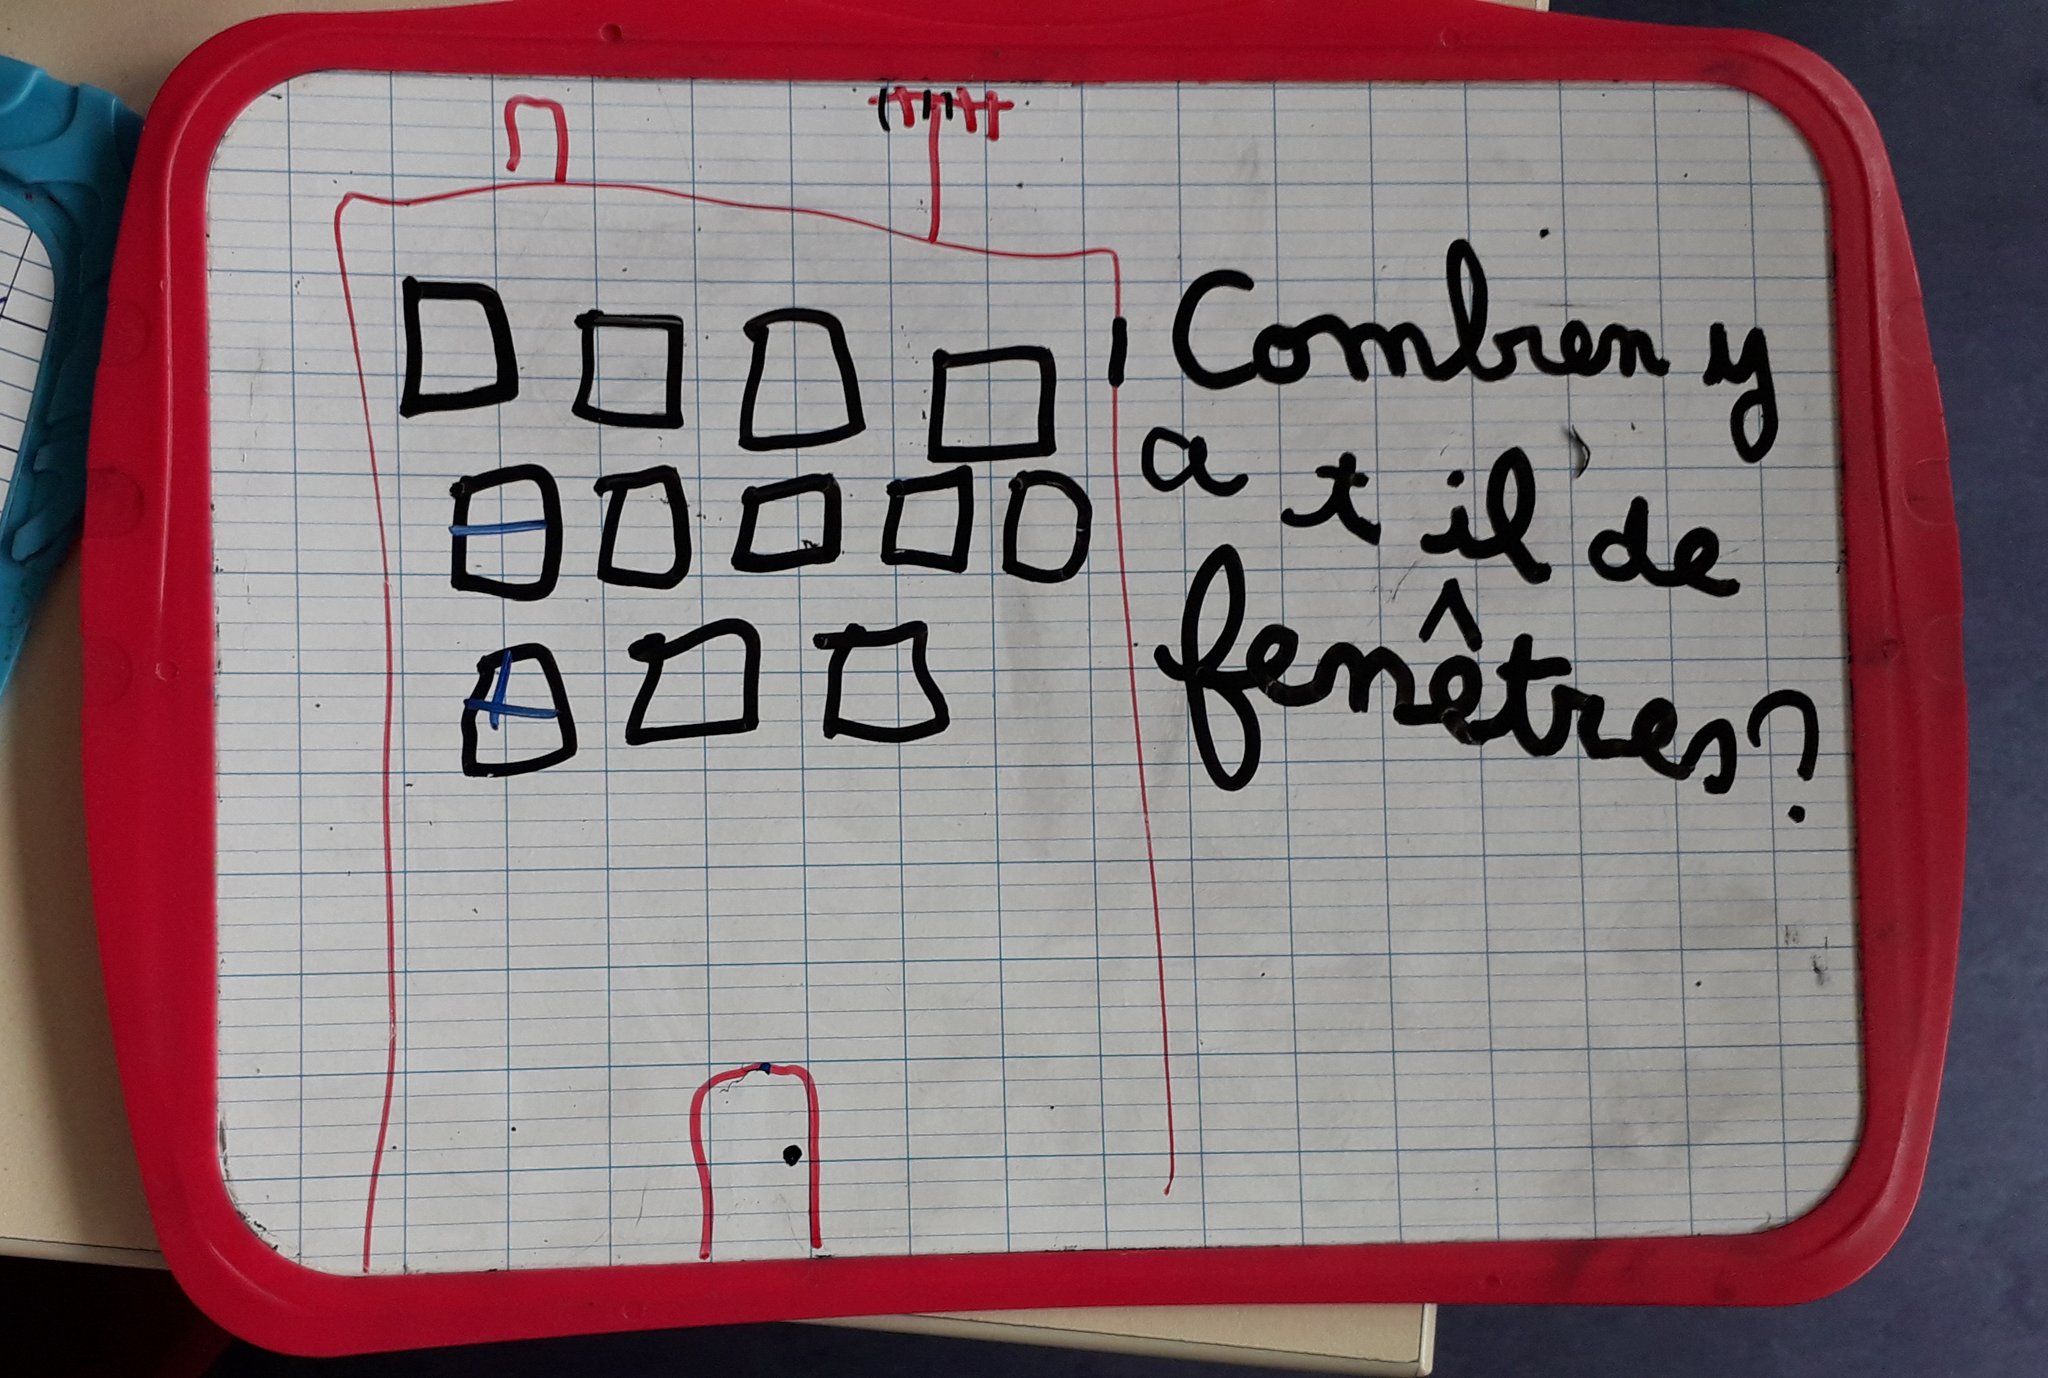 Combien y
a t il de
fenêtres?